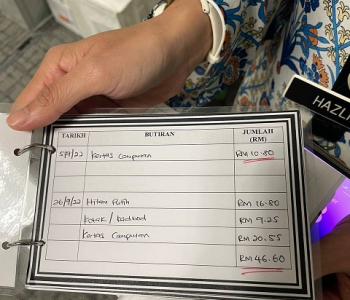 TARIKH BUTIRAN JUMLAH (RM)
5/9/22 Kertas Campuran RM 10.80
26/9/22 Hitam Putih RM 16.80
Kotak / kadbod RM 9.25
Kertas Campuran RM 20.55
RM 46.60
HAZLI